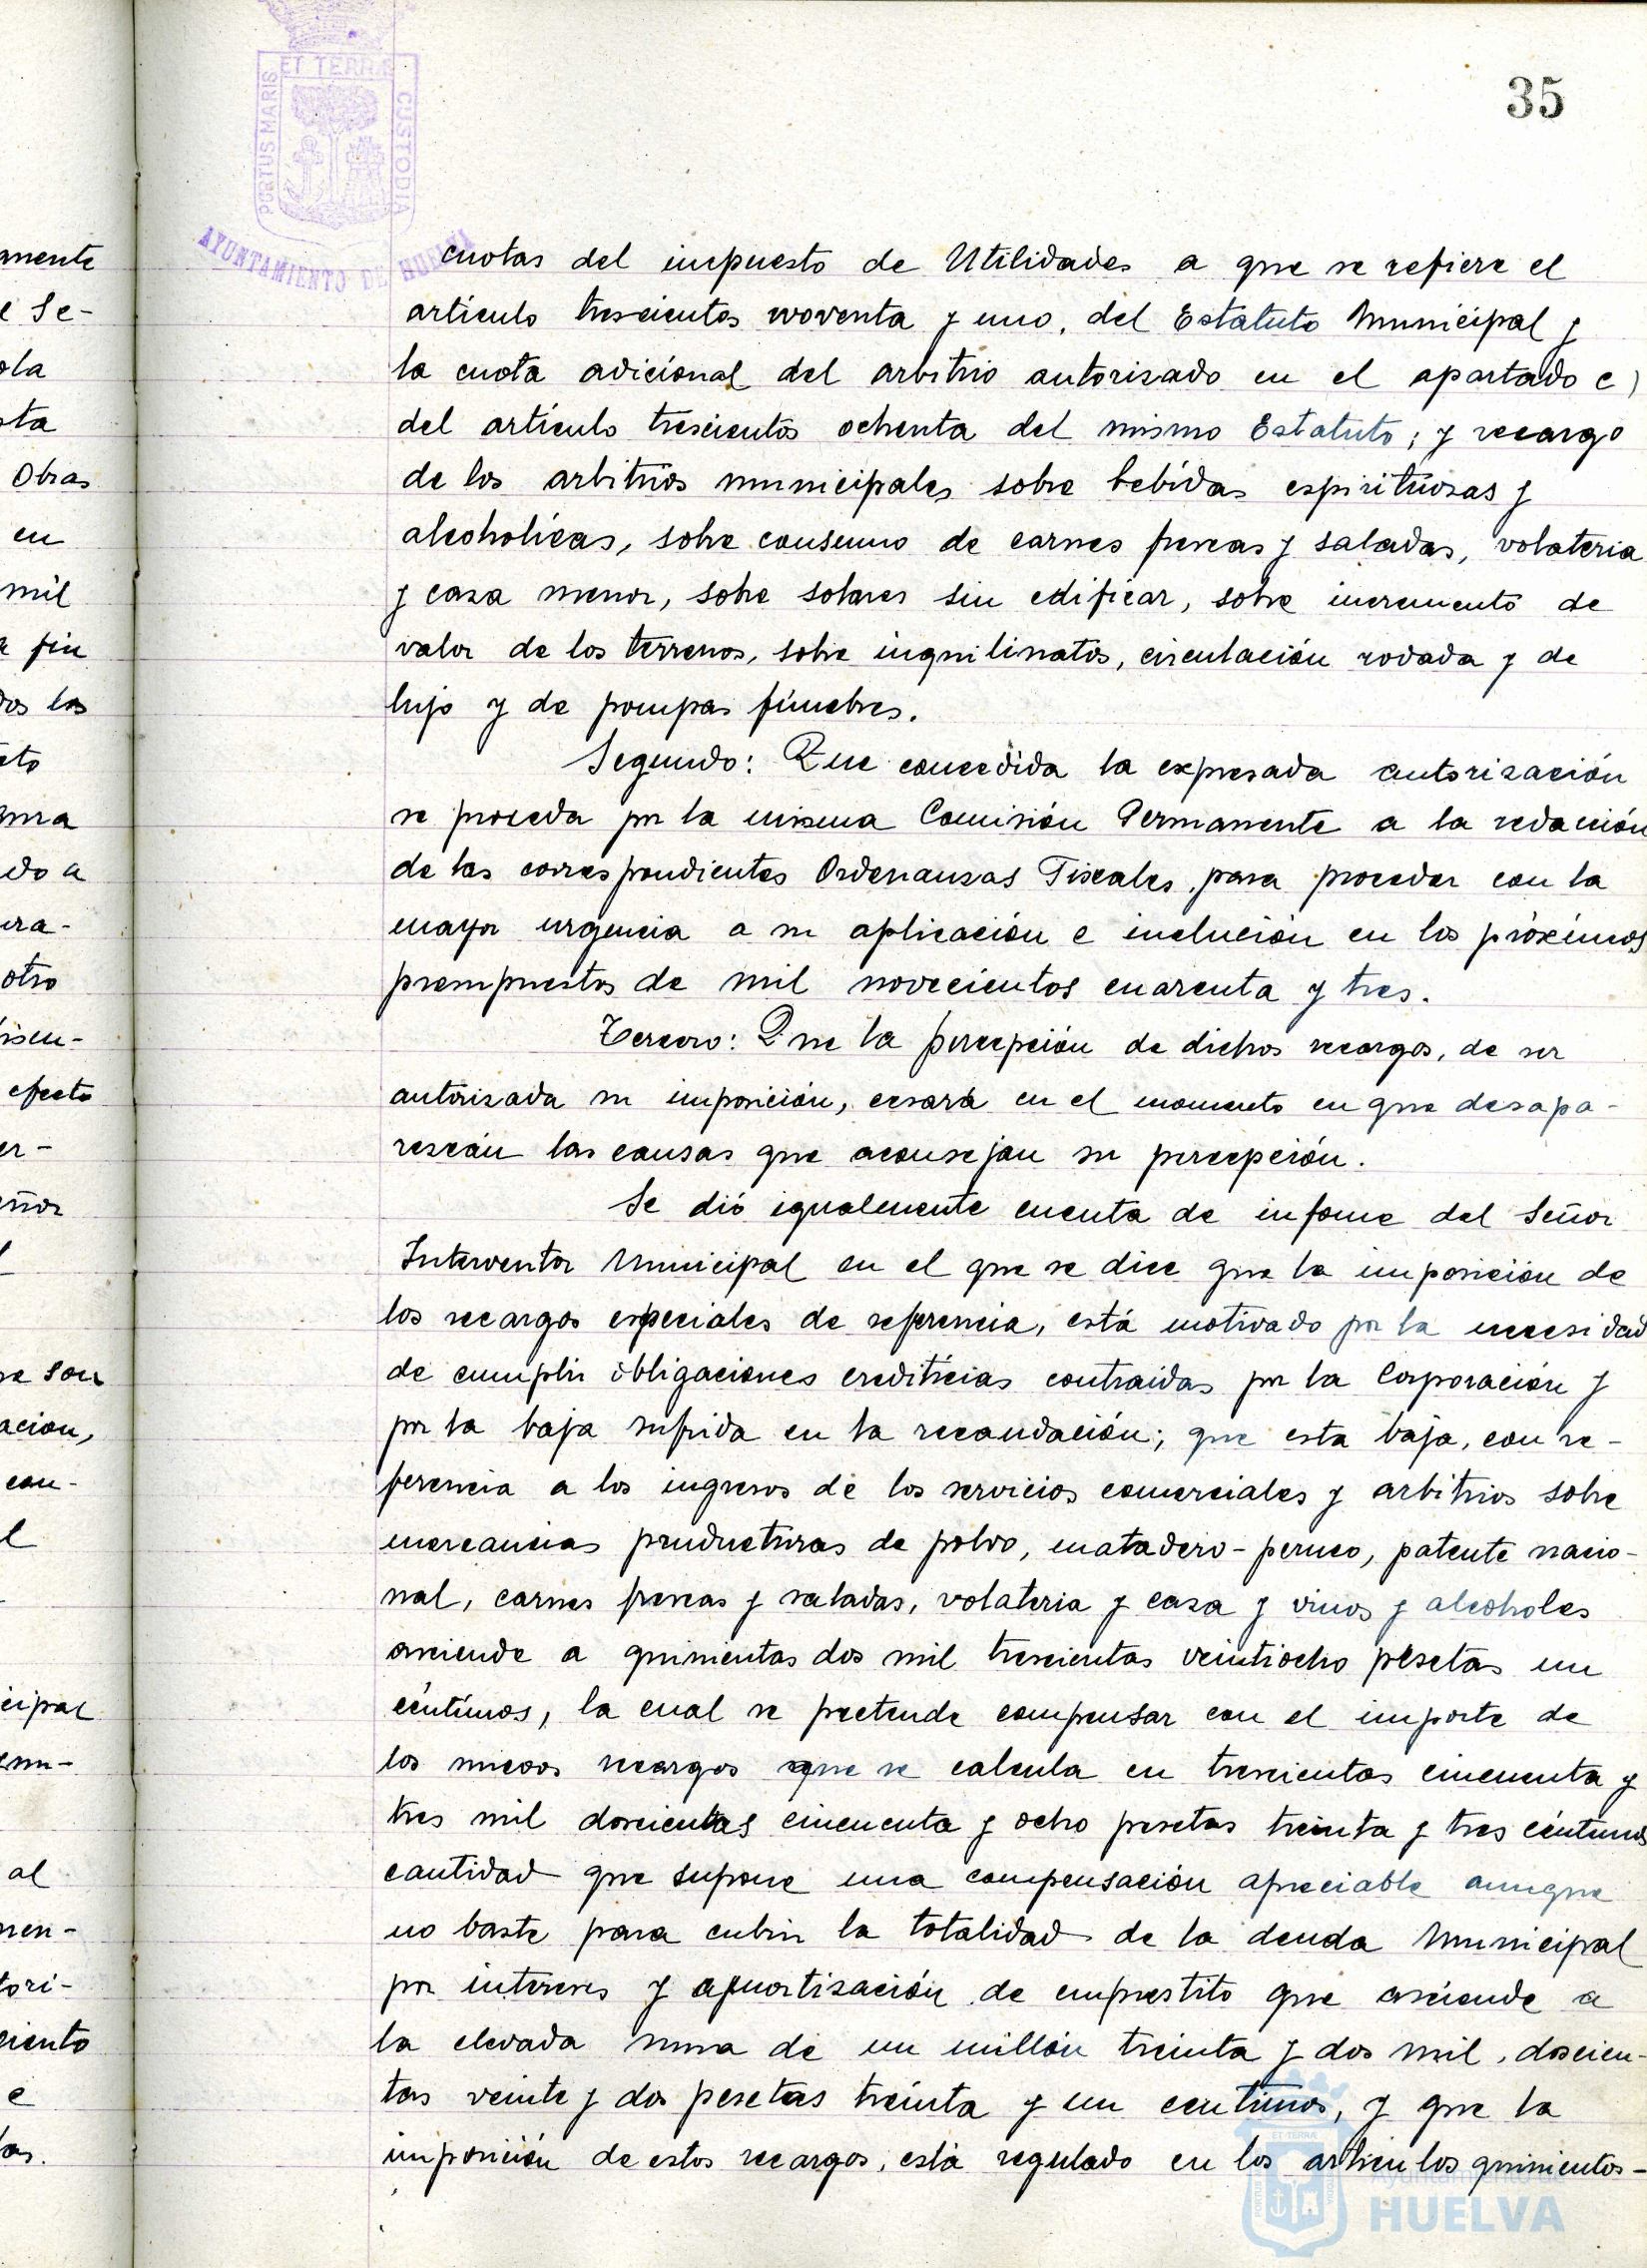 35
ET TERRÆ
PORTUS MARIS
CUSTODIA
AYUNTAMIENTO DE HUELVA
cuotas del impuesto de Utilidades a que se refiere el
artículo trescientos noventa y uno, del Estatuto Municipal y
la cuota adicional del arbitrio autorizado en el apartado c)
del artículo trescientos ochenta del mismo Estatuto; y recargo
de los arbitrios municipales sobre bebidas espirituosas y
alcoholicas, sobre consumo de carnes frescas y saladas, volateria
y caza menor, sobre solares sin edificar, sobre incremento de
valor de los terrenos, sobre inquilinatos, circulación rodada y de
lujo y de pompas fúnebres.
Segundo: Que concedida la expresada autorización
se proceda por la misma Comisión Permanente a la redacción
de las correspondientes Ordenanzas Fiscales, para proceder con la
mayor urgencia a su aplicación e inclución en los próximos
presupuestos de mil novecientos cuarenta y tres.
Tercero: Que la percepción de dichos recargos, de ser
autorizada su imposición, cesará en el momento en que desapa-
rescán las causas que aconsejan su percepción.
Se dió igualmente cuenta de informe del Señor
Interventor Municipal en el que se dice que la imposición de
los recargos especiales de referencia, está motivado por la necesidad
de cumplir obligaciones crediticias contraidas por la Corporación y
por la baja sufrida en la recaudación; que esta baja, con re-
ferencia a los ingresos de los servicios comerciales y arbitrios sobre
mercancias productoras de polvo, matadero-peruco, patente nacio-
nal, carnes frescas y saladas, volateria y caza y vinos y alcoholes
asciende a quinientas dos mil trescientas veintiocho pesetas un
céntimos, la cual se pretende compensar con el importe de
los nuevos recargos que se calcula en trescientas cincuenta y
tres mil doscientas cincuenta y ocho pesetas treinta y tres céntimos
cantidad que supone una compensación apreciable aunque
no baste para cubrir la totalidad de la deuda Municipal
por intereses y amortización de emprestito que asciende a
la elevada suma de un millón treinta y dos mil, doscien-
tas veinte y dos pesetas treinta y un centimos, y que la
imposición de estos recargos, está regulado en los artículos quinientos-
HUELVA